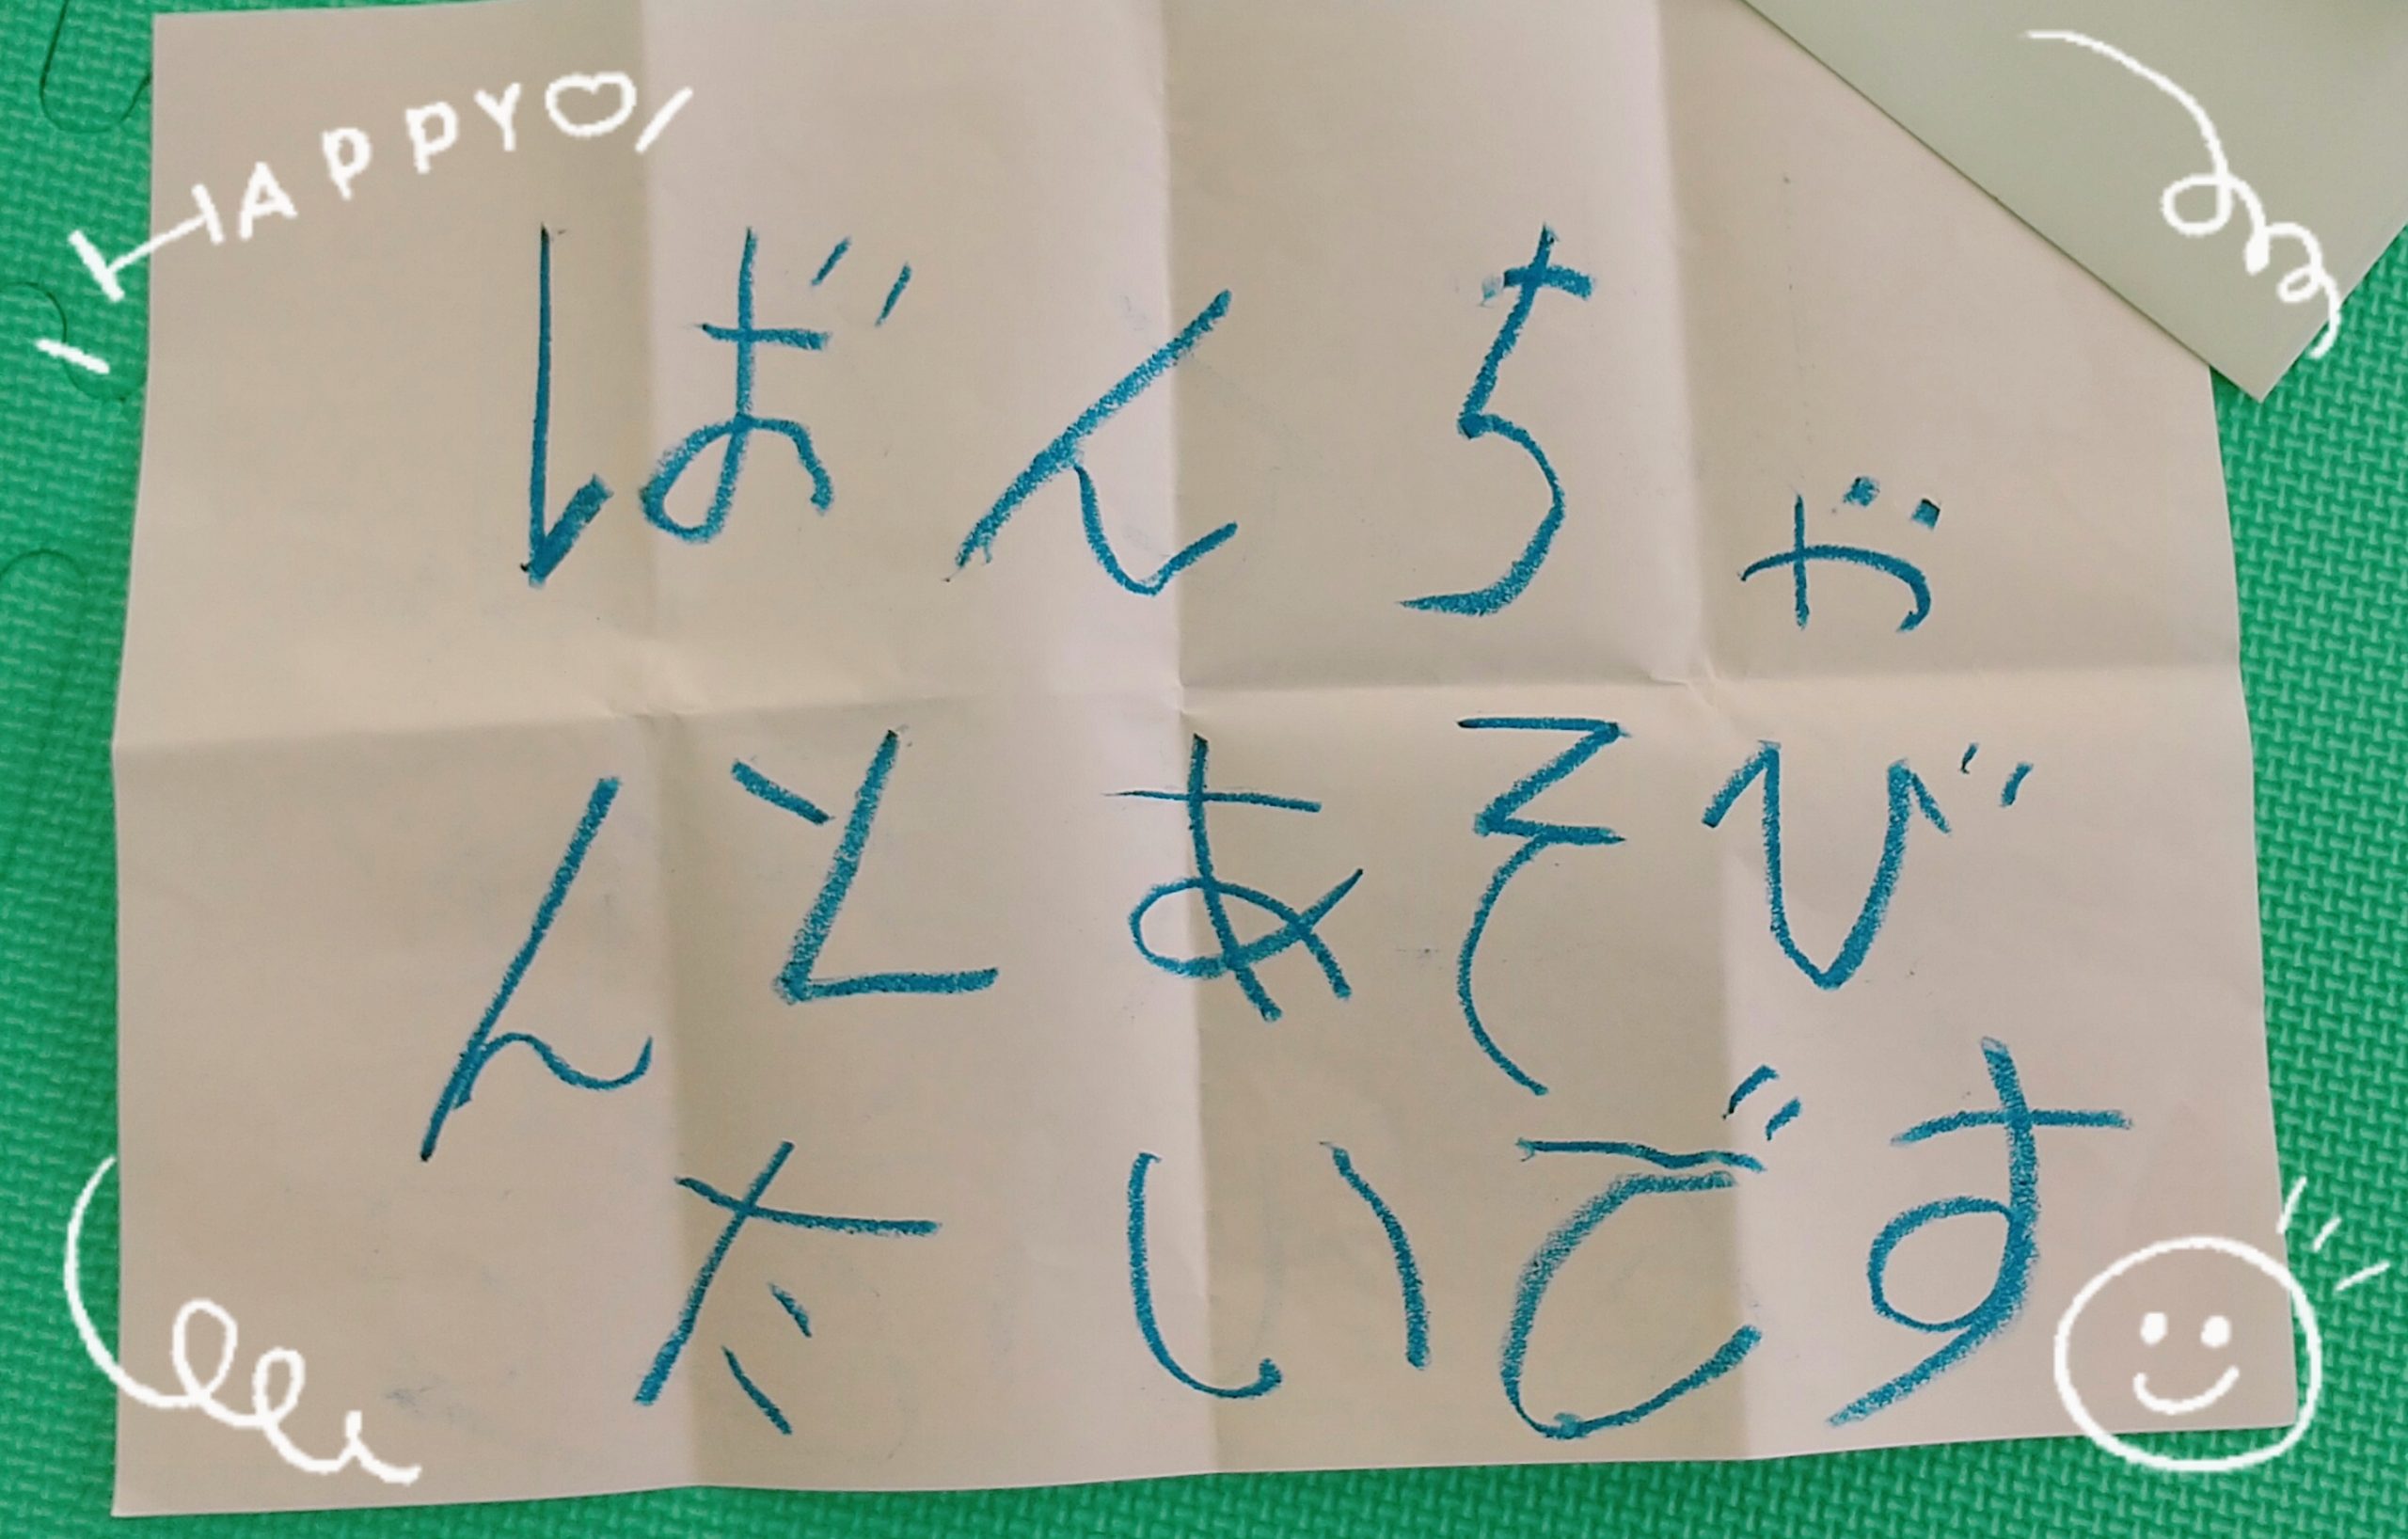 HAPPY♡
ばんちゃ
んとあそび
たいです